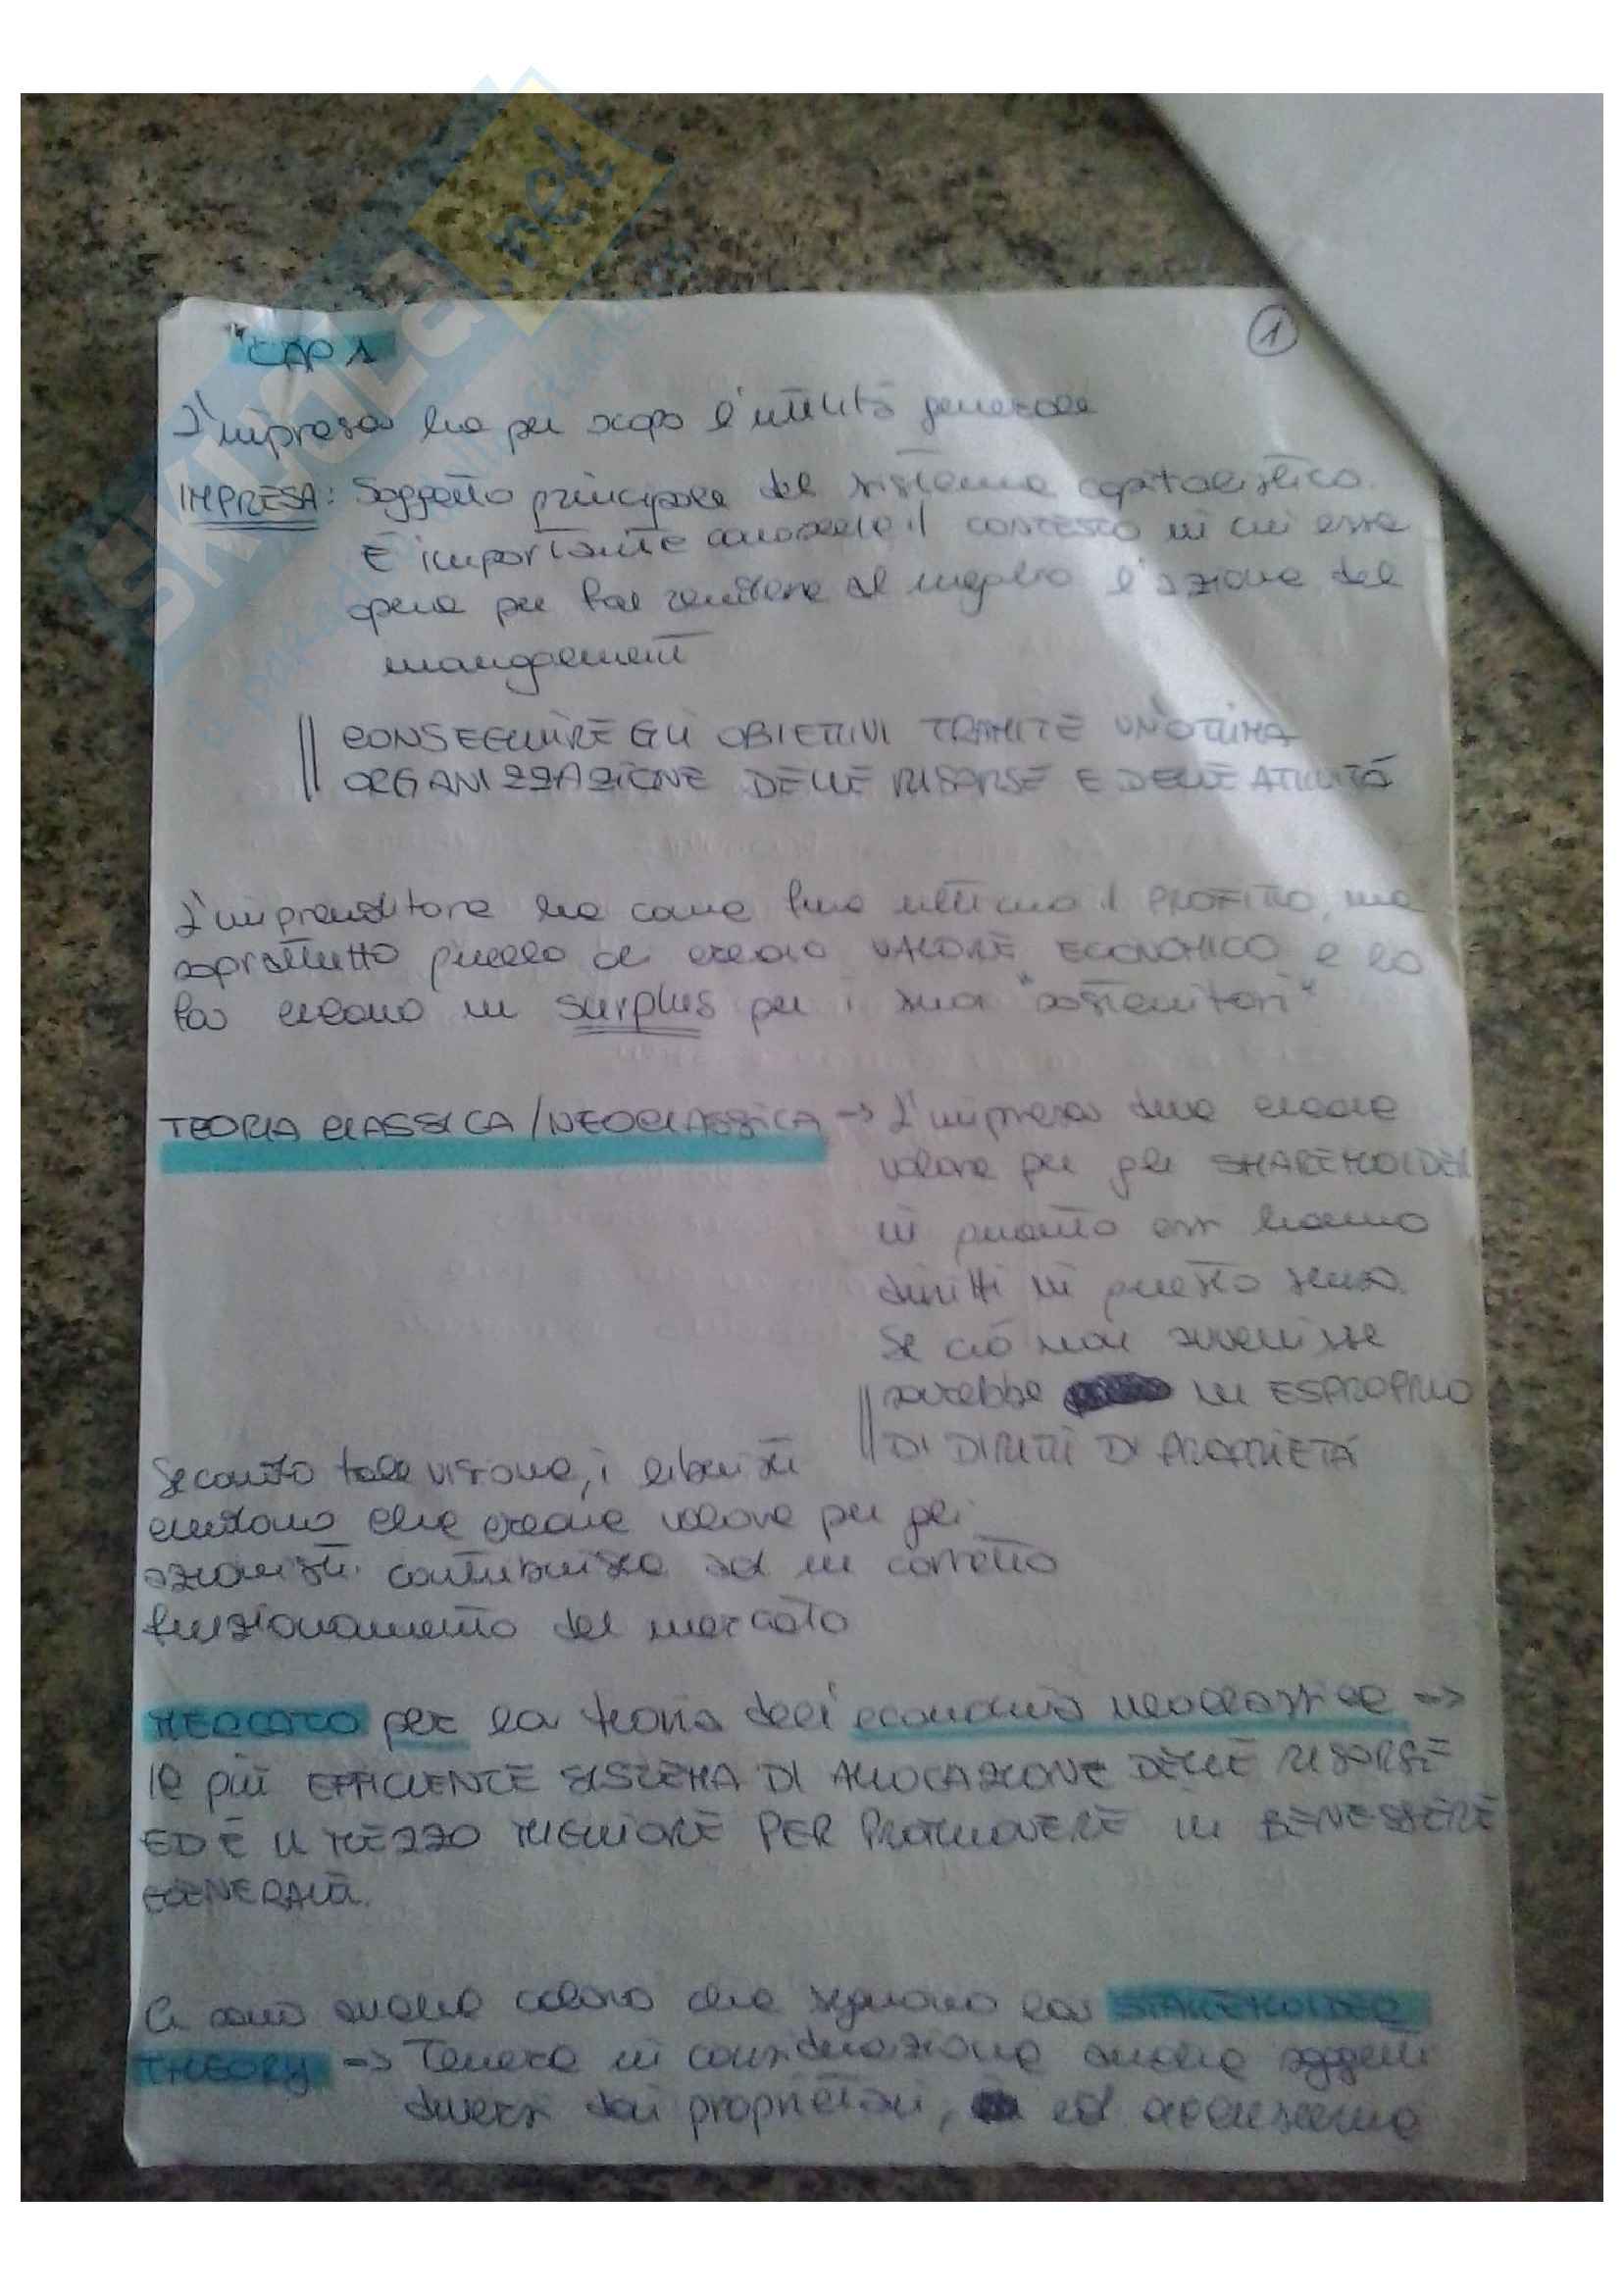 SKUOLA.net
il paradiso dello studente
CAP 1
1
L'impresa ha per scopo l'utilità generale
IMPRESA: Soggetto principale del sistema capitalistico.
È importante conoscere il contesto in cui essa
opera per far rendere al meglio l'azione del
mangement
CONSEGUIRE GLI OBIETTIVI TRAMITE UN'OTTIMA
ORGANIZZAZIONE DELLE RISORSE E DELLE ATTIVITÁ
L'imprenditore ha come fine ultimo il PROFITTO, ma
soprattutto quello di creare VALORE ECONOMICO e lo
fa creano un surplus per i suoi "sostenitori"
TEORIA CLASSICA/NEOCLASSICA -> L'impresa deve creare
valore per gli SHAREHOLDER
in quanto essi hanno
diritti in questo senso.
Se ció non avvenisse
sarebbe un ESPROPRIO
DI DIRITTI DI PROPRIETÁ
Secondo tale visione, i liberisti
credono che creare valore per gli
azionisti contribuisca ad un corretto
funzionamento del mercato
MERCATO per la teoria dell'economia neoclassica =>
Il più EFFICIENTE SISTEMA DI ALLOCAZIONE DELLE RISORSE
ED É IL MEZZO MIGLIORE PER PROMUOVERE IL BENESSERE
GENERALE.
Ci sono anche coloro che seguono la STAKEHOLDER
THEORY => Tenere in considerazione anche soggetti
diversi dai proprietari, ed